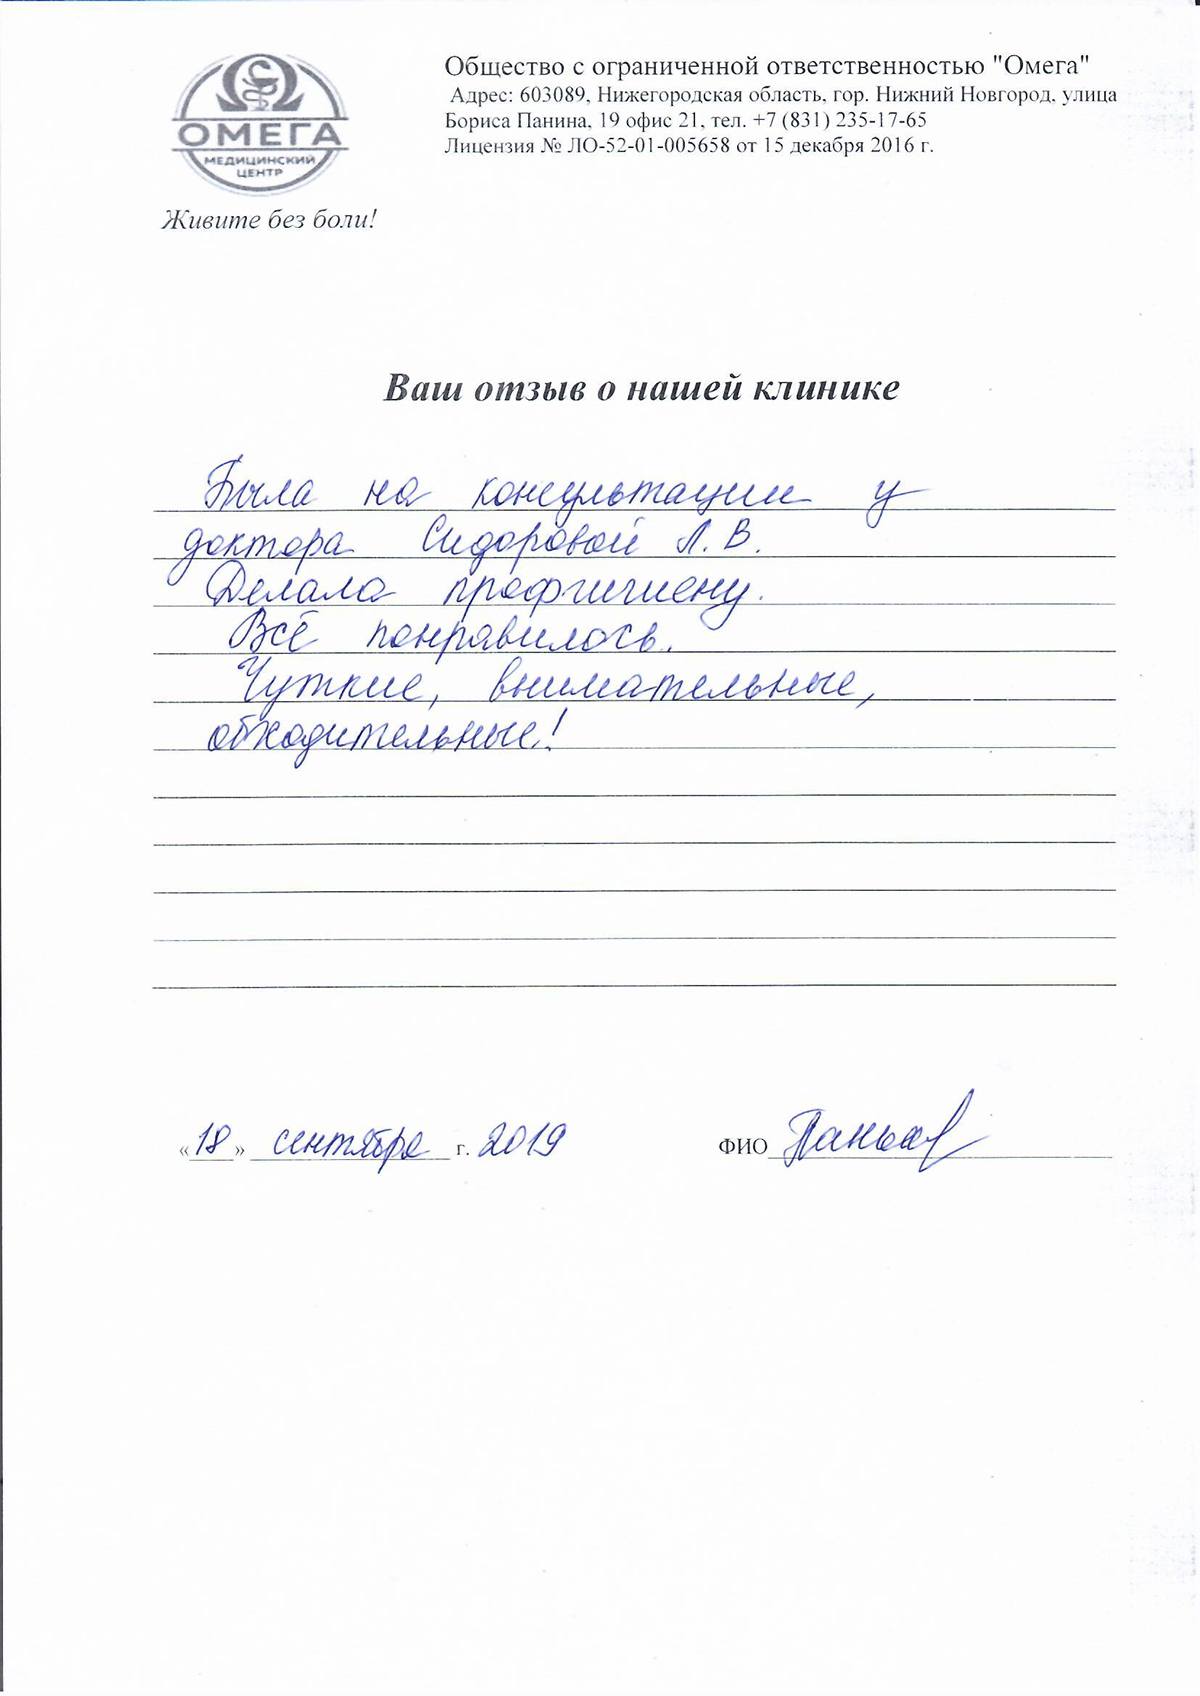 ОМЕГА
МЕДИЦИНСКИЙ
ЦЕНТР
Живите без боли!
Общество с ограниченной ответственностью "Омега"
Адрес: 603089, Нижегородская область, гор. Нижний Новгород, улица
Бориса Панина, 19 офис 21, тел. +7 (831) 235-17-65
Лицензия № ЛО-52-01-005658 от 15 декабря 2016 г.
Ваш отзыв о нашей клинике
Была на консультации у
доктора Сидоровой Л. В.
Делала профгигиену.
Всё понравилось.
Чуткие, внимательные,
обходительные!
«18» сентября г. 2019
ФИО